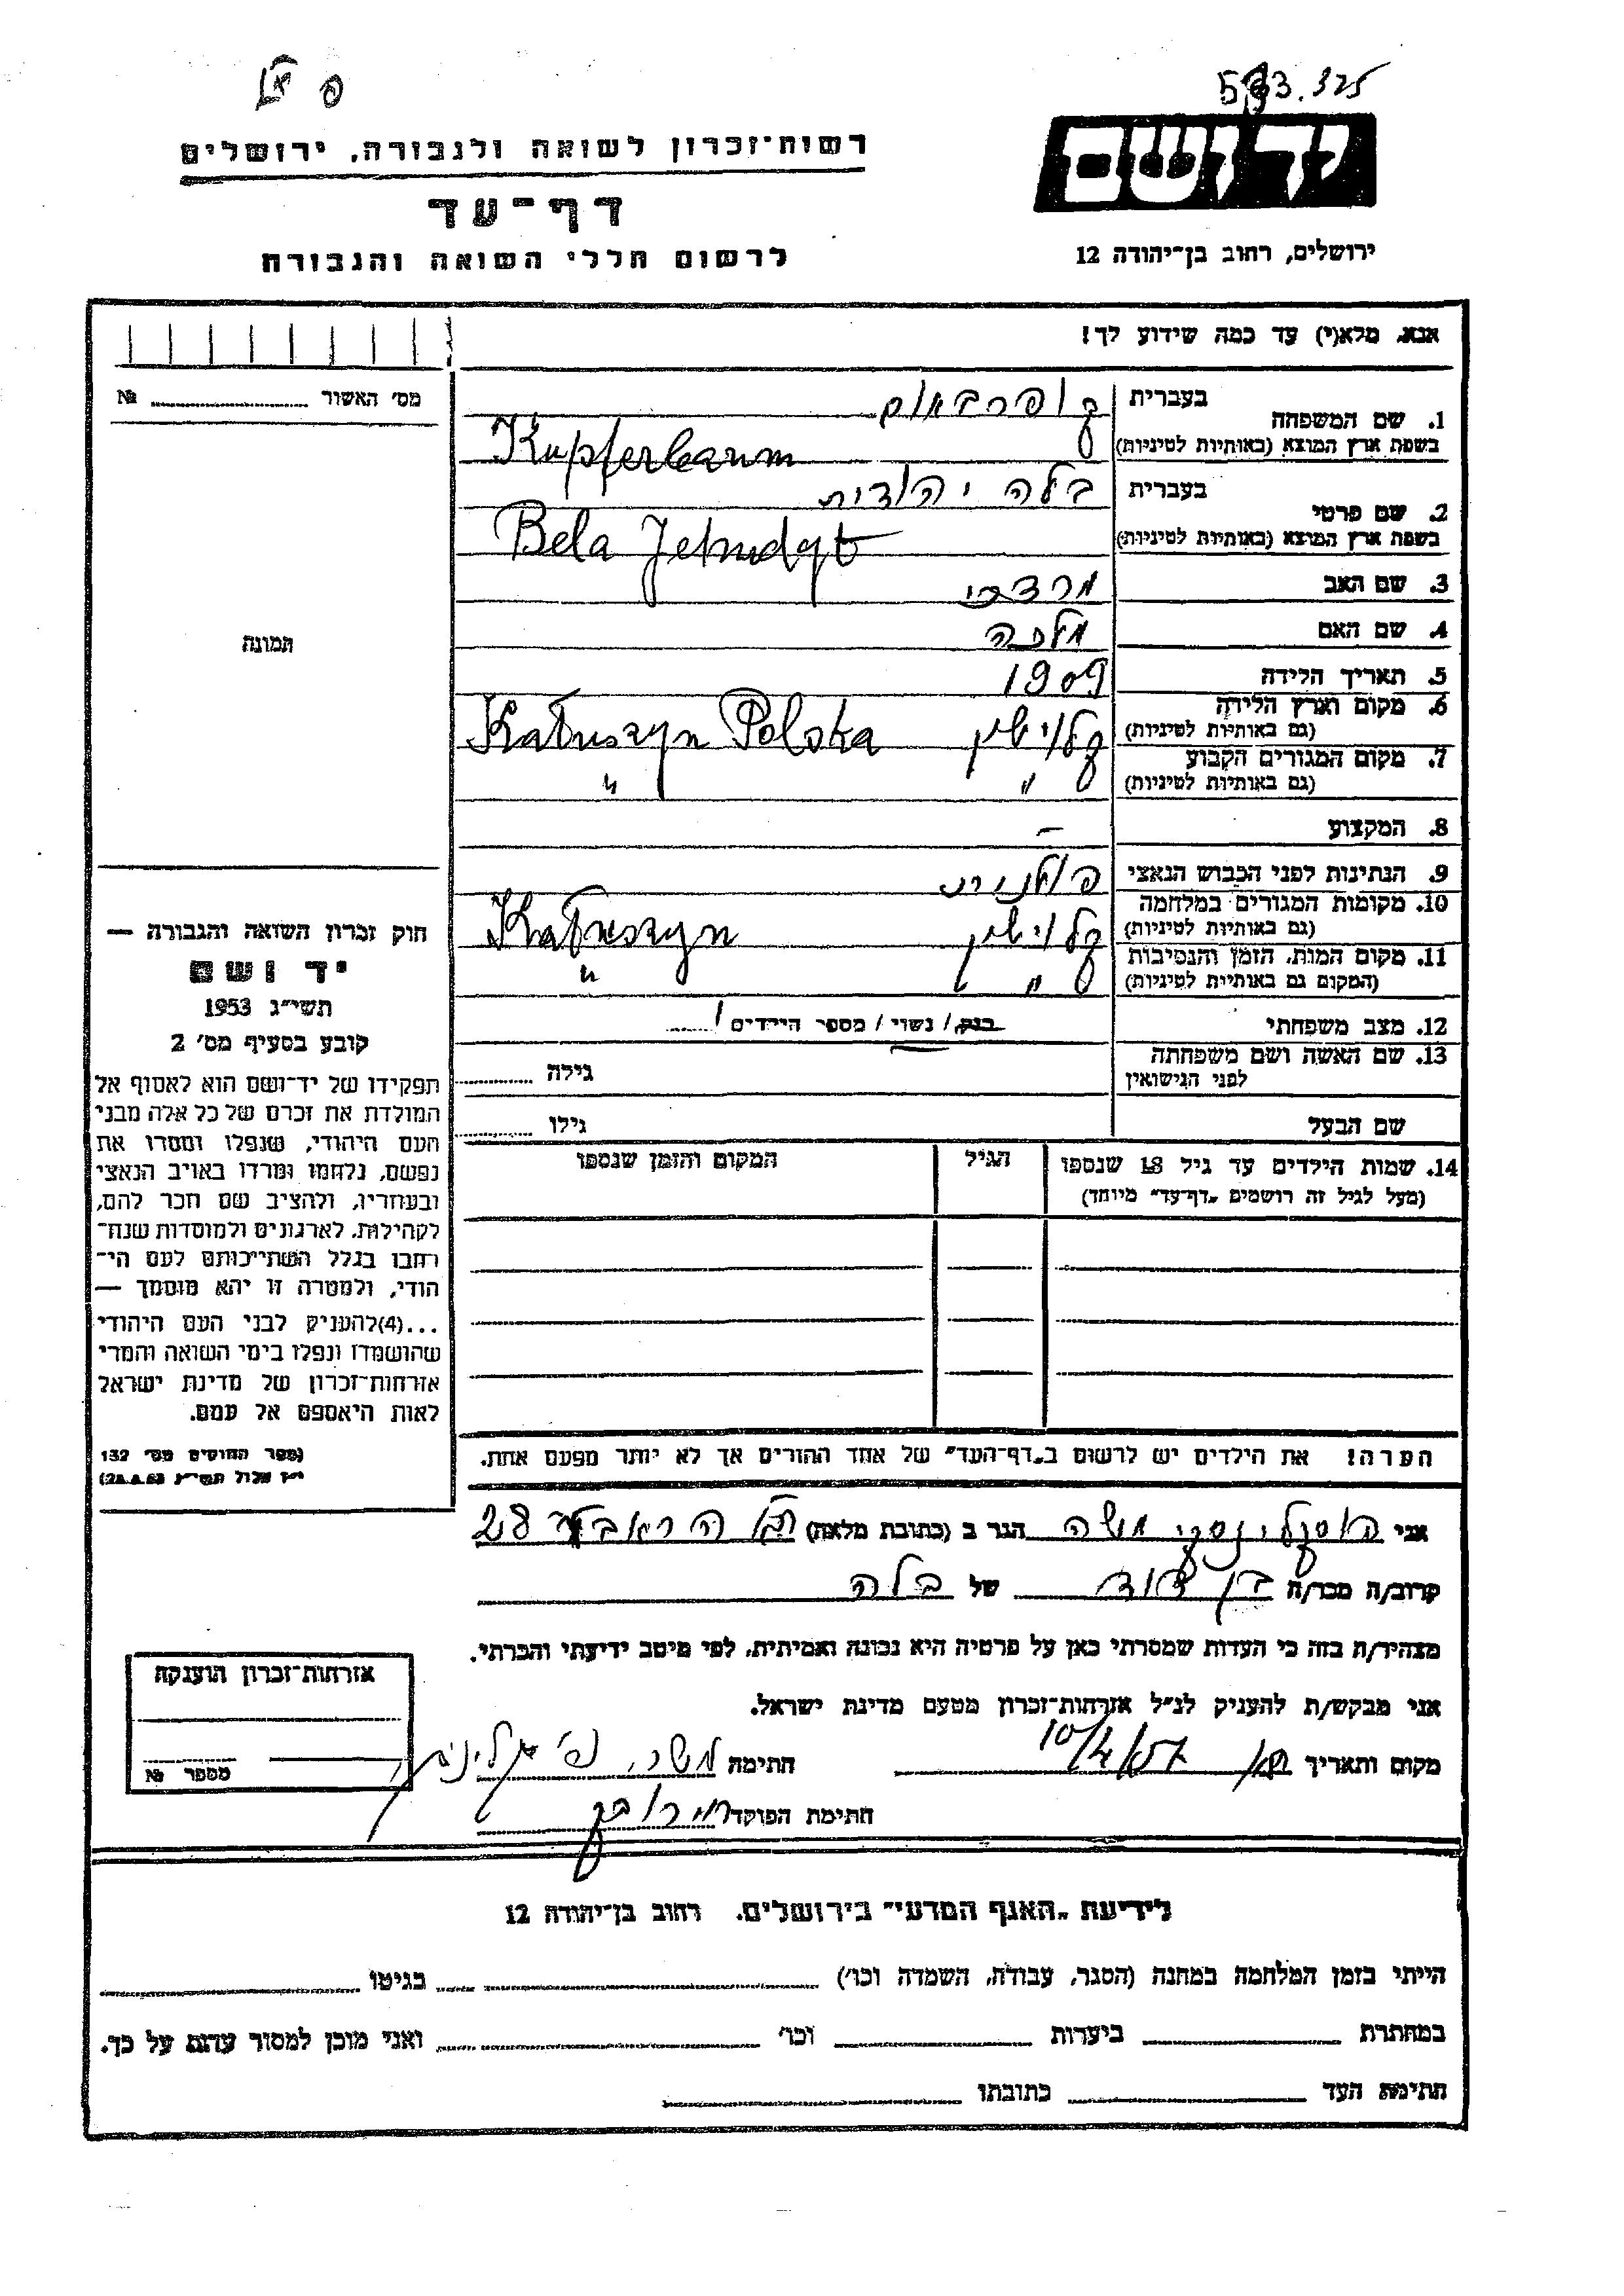 533.325
רשות־זכרון לשואה ולגבורה, ירושלים
דף־עד
לרשום חללי השואה והגבורה
יד ושם
ירושלים, רחוב בן־יהודה 12
אנא, מלא(י) עד כמה שידוע לך!
מס׳ האשור № 
1. שם המשפחה בעברית קופרבאום
בשפת ארץ המוצא (באותיות לטיניות) Kupferbaum
2. שם פרטי בעברית בלה יהודית
בשפת ארץ המוצא (באותיות לטיניות) Bela Jehudyt
3. שם האב מרדכי
4. שם האם מלכה
5. תאריך הלידה 1909
6. מקום וארץ הלידה (גם באותיות לטיניות) קלושין Kałuszyn Polska
7. מקום המגורים הקבוע (גם באותיות לטיניות) " "
8. המקצוע —
9. הנתינות לפני הכבוש הנאצי פולנית
10. מקומות המגורים במלחמה (גם באותיות לטיניות) קלושין Kałuszyn
11. מקום המות, הזמן והנסיבות (המקום גם באותיות לטיניות) " "
12. מצב משפחתי רווק / נשוי / מספר הילדים 1
13. שם האשה ושם משפחתה לפני הנישואין גילה
שם הבעל גילו
14. שמות הילדים עד גיל 18 שנספו (מעל לגיל זה רושמים „דף־עד״ מיוחד) הגיל המקום והזמן שנספו
הערה! את הילדים יש לרשום ב„דף־העד״ של אחד ההורים אך לא יותר מפעם אחת.
תמונה
חוק זכרון השואה והגבורה —
יד ושם
תשי״ג 1953
קובע בסעיף מס׳ 2
תפקידו של יד־ושם הוא לאסוף אל
המולדת את זכרם של כל אלה מבני
העם היהודי, שנפלו ומסרו את
נפשם, נלחמו ומרדו באויב הנאצי
ובעוזריו, ולהציב שם וזכר להם,
לקהילות, לארגונים ולמוסדות שנח־
רבו בגלל השתייכותם לעם הי־
הודי, ולמטרה זו יהא מוסמך —
...(4)להעניק לבני העם היהודי
שהושמדו ונפלו בימי השואה והמרי
אזרחות־זכרון של מדינת ישראל
לאות היאספם אל עמם.
(ספר החוקים מס׳ 132
י״ז אלול תשי״ג 28.8.53)
אני משה הגר ב (כתובת מלאה) 28
קרוב/ה מכר/ה בן דוד של בלה
מצהיר/ה בזה כי העדות שמסרתי כאן על פרטיה היא נכונה ואמיתית, לפי מיטב ידיעתי והכרתי.
אני מבקש/ת להעניק לנ״ל אזרחות־זכרון מטעם מדינת ישראל.
מקום ותאריך 10/4/57 חתימה משה
חתימת הפוקד
אזרחות־זכרון הוענקה
מספר №
לידיעת „האגף המדעי״ בירושלים, רחוב בן־יהודה 12
הייתי בזמן המלחמה במחנה (הסגר, עבודה, השמדה וכו׳) בגיטו
במחתרת ביערות וכו׳ ואני מוכן למסור עדות על כך.
חתימת העד כתובתו